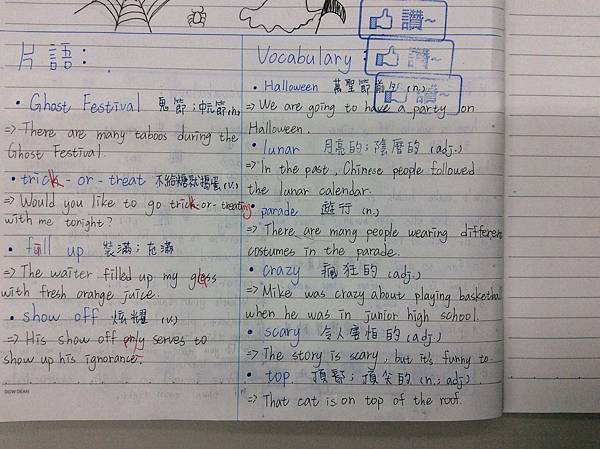 片語：
• Ghost Festival 鬼節；中元節(n.)
⇒ There are many taboos during the
Ghost Festival.
• trick-or-treat 不給糖就搗蛋(v.)
⇒ Would you like to go trick-or-treating
with me tonight?
• fill up 裝滿；充滿
⇒ The waiter filled up my glass
with fresh orange juice.
• show off 炫耀 (v.)
⇒ His show off only serves to
show up his ignorance.
DOW DEAN
Vocabulary :
讚~
讚~
讚~
• Halloween 萬聖節前夕 (n.)
⇒ We are going to have a party on
Halloween.
• lunar 月亮的；陰曆的 (adj.)
⇒ In the past, Chinese people followed
the lunar calendar.
• parade 遊行 (n.)
⇒ There are many people wearing different
costumes in the parade.
• crazy 瘋狂的 (adj.)
⇒ Mike was crazy about playing basketball
when he was in junior high school.
• scary 令人害怕的 (adj.)
⇒ The story is scary, but it's funny to.
• top 頂部；頂尖的 (n.; adj.)
⇒ That cat is on top of the roof.